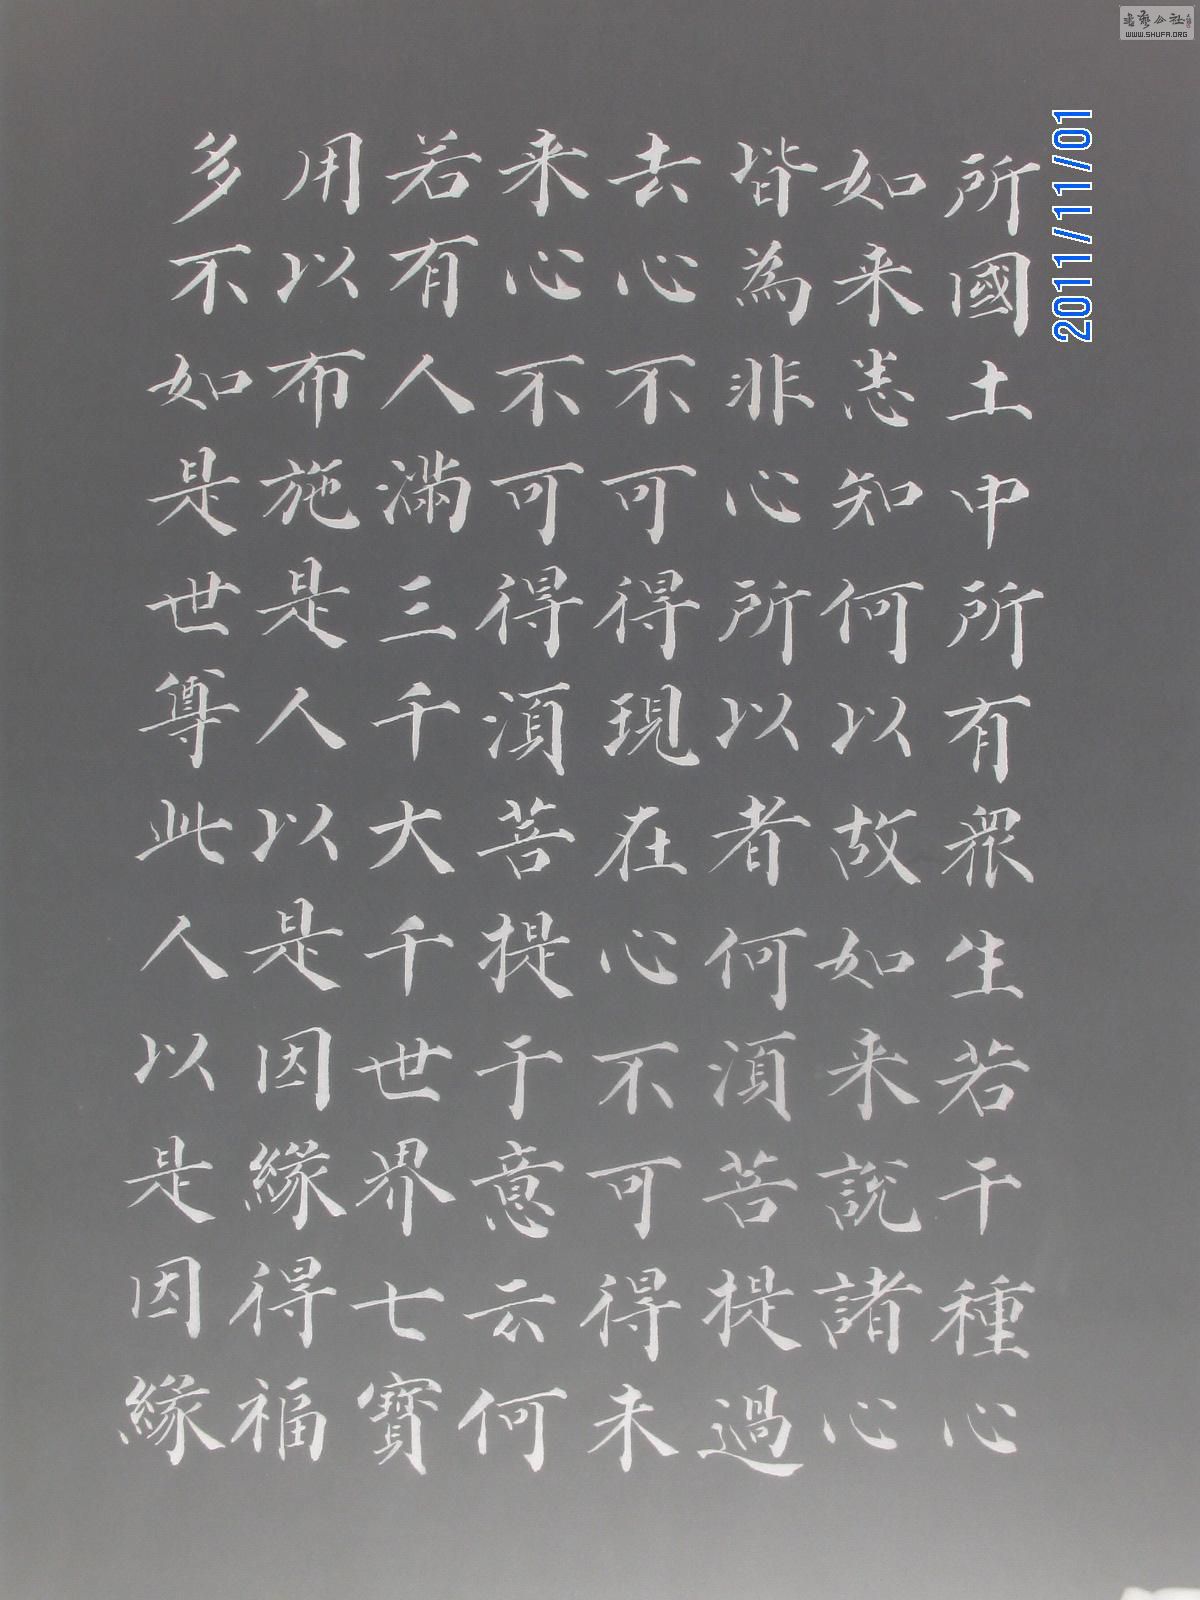 所國土中所有衆生若干種心
如来悉知何以故如来說諸心
皆為非心所以者何須菩提過
去心不可得現在心不可得未
来心不可得須菩提于意云何
若有人滿三千大千世界七寶
用以布施是人以是因緣得福
多不如是世尊此人以是因緣
2011/11/01
书艺公社
WWW.SHUFA.ORG